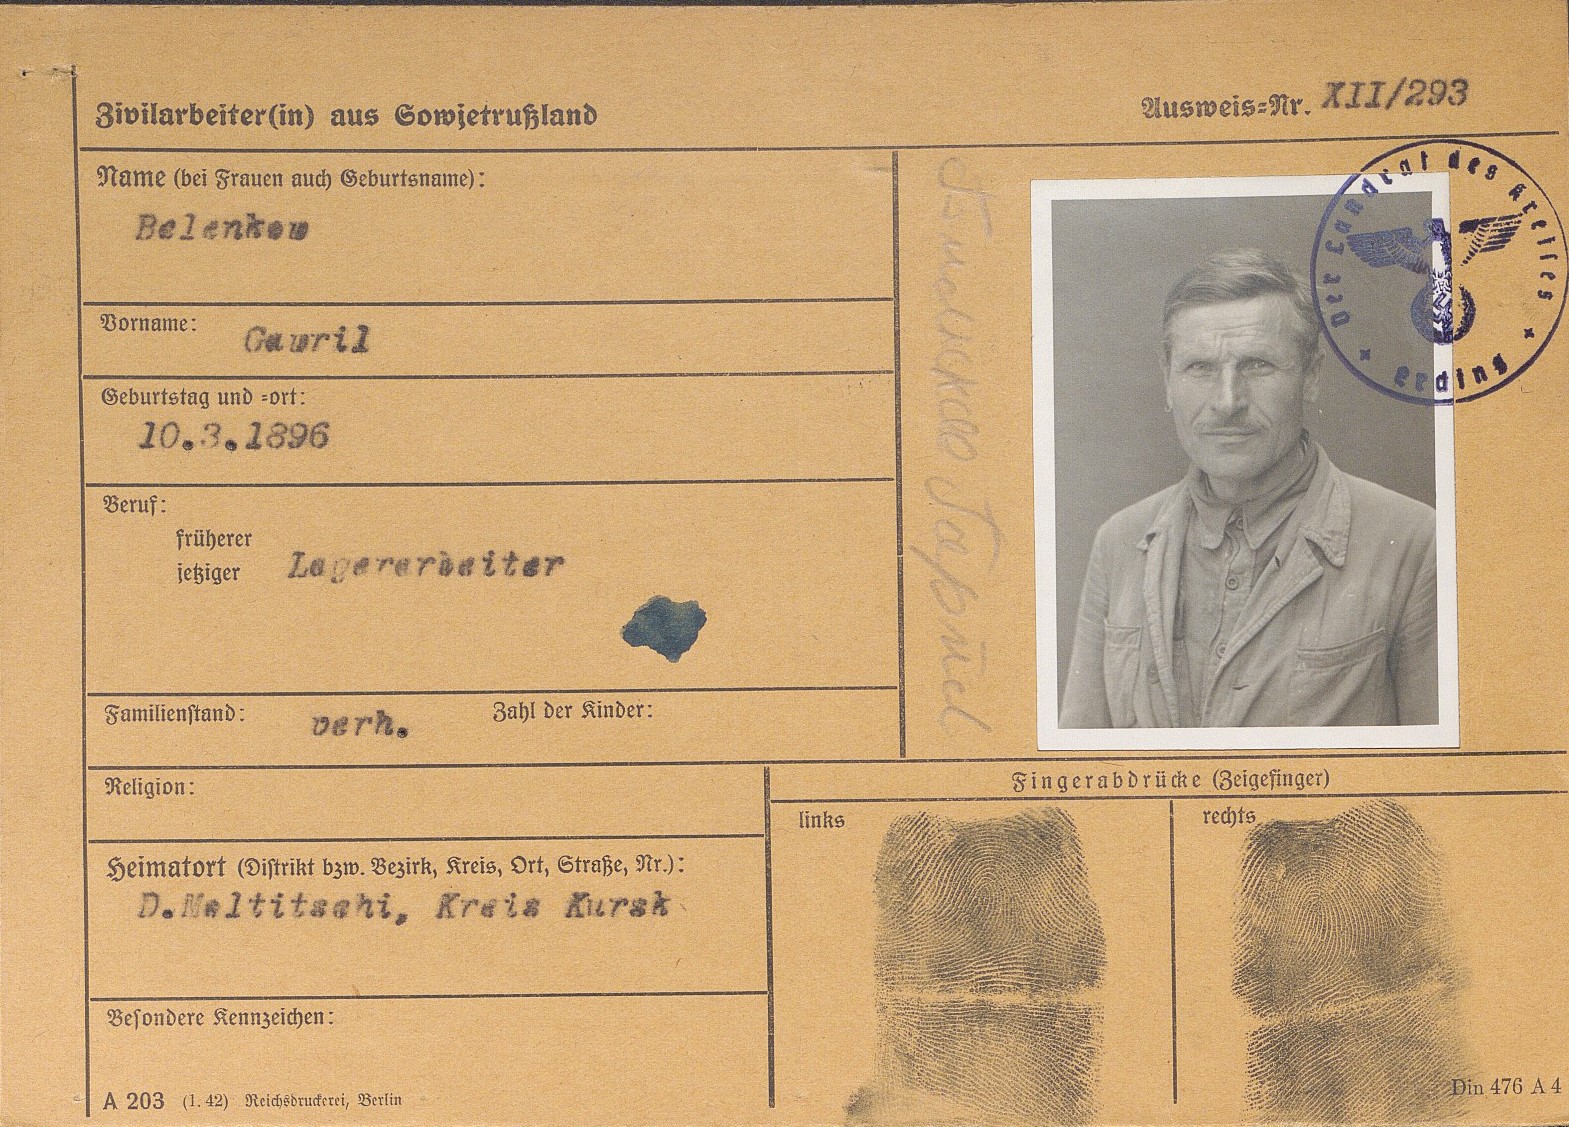 Zivilarbeiter(in) aus Sowjetrußland
Ausweis=Nr. XII/293
Name (bei Frauen auch Geburtsname):
Belenkow
Vorname: Gawril
Geburtstag und =ort:
10.3.1896
Beruf:
früherer
jetziger Lagerarbeiter
Familienstand: verh. Zahl der Kinder:
Religion:
Heimatort (Distrikt bzw. Bezirk, Kreis, Ort, Straße, Nr.):
D.Maltitschi, Kreis Kursk
Besondere Kennzeichen:
A 203 (1. 42) Reichsdruckerei, Berlin
Der Landrat des Kreises
Erding
Fingerabdrücke (Zeigefinger)
links
rechts
Din 476 A 4